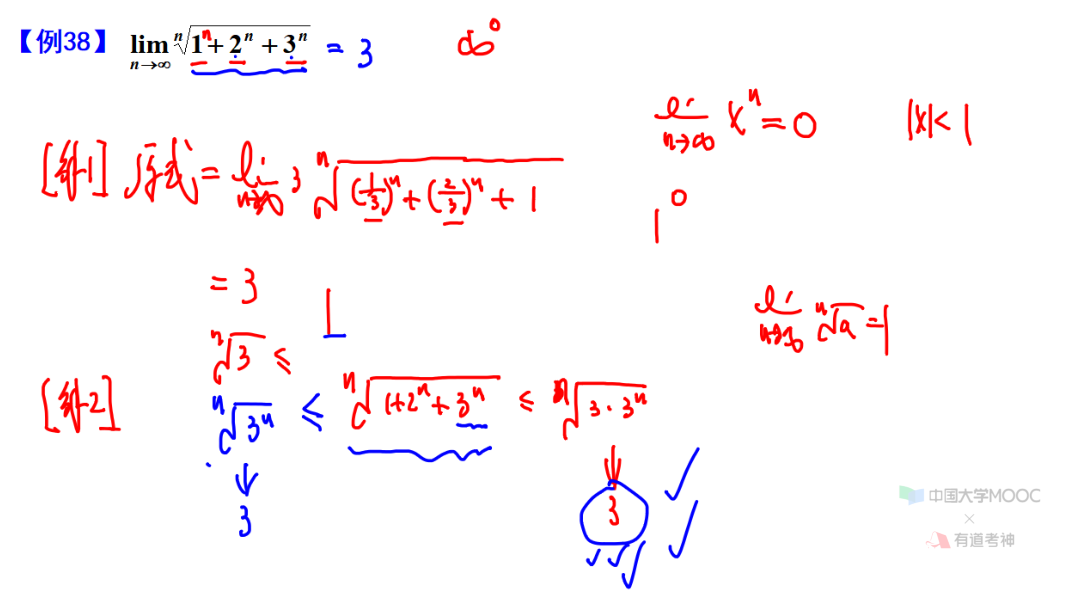 【例38】 lim n→∞ ⁿ√(1ⁿ + 2ⁿ + 3ⁿ) = 3
∞⁰
lim n→∞ xⁿ = 0 |x| < 1
[解1] 原式 = lim n→∞ 3 ⁿ√((1/3)ⁿ + (2/3)ⁿ + 1)
1⁰
= 3
1
lim n→∞ ⁿ√a = 1
ⁿ√3 ≤
[解2] ⁿ√3ⁿ ≤ ⁿ√(1+2ⁿ+3ⁿ) ≤ ⁿ√(3·3ⁿ)
↓ ↓
3 3
中国大学MOOC
×
有道考神